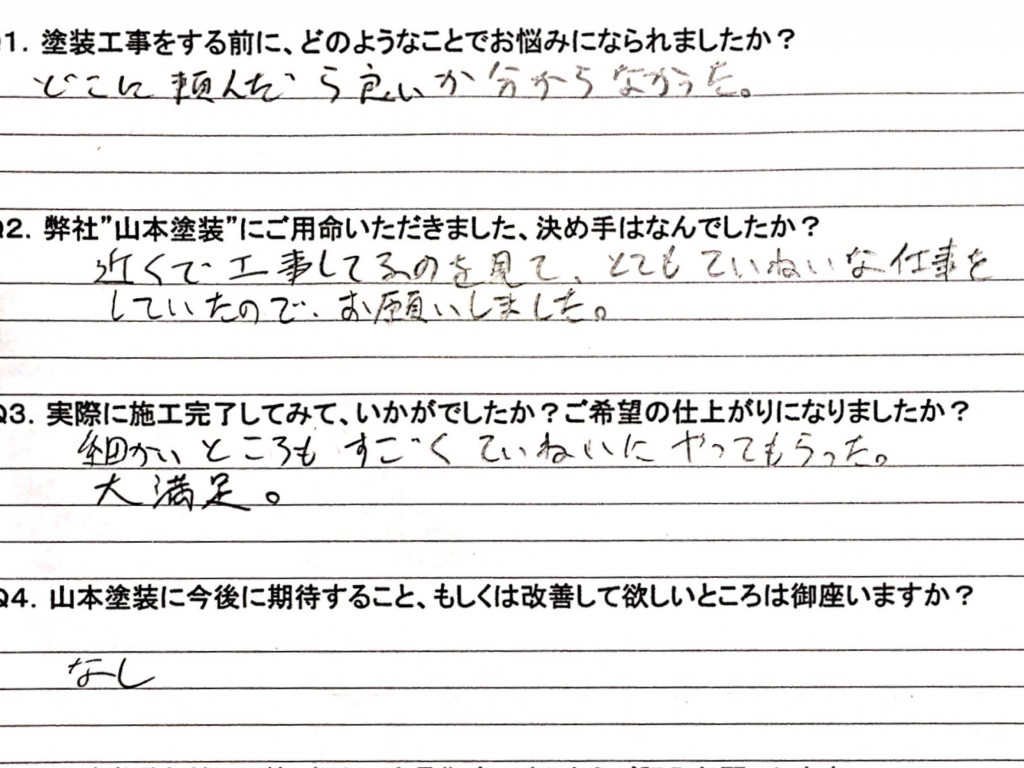 Q1. 塗装工事をする前に、どのようなことでお悩みになられましたか？
どこに頼んだら良いか分からなかった。
Q2. 弊社”山本塗装”にご用命いただきました、決め手はなんでしたか？
近くで工事してるのを見て、とてもていねいな仕事を
していたので、お願いしました。
Q3. 実際に施工完了してみて、いかがでしたか？ご希望の仕上がりになりましたか？
細かいところもすごくていねいにやってもらった。
大満足。
Q4. 山本塗装に今後に期待すること、もしくは改善して欲しいところは御座いますか？
なし